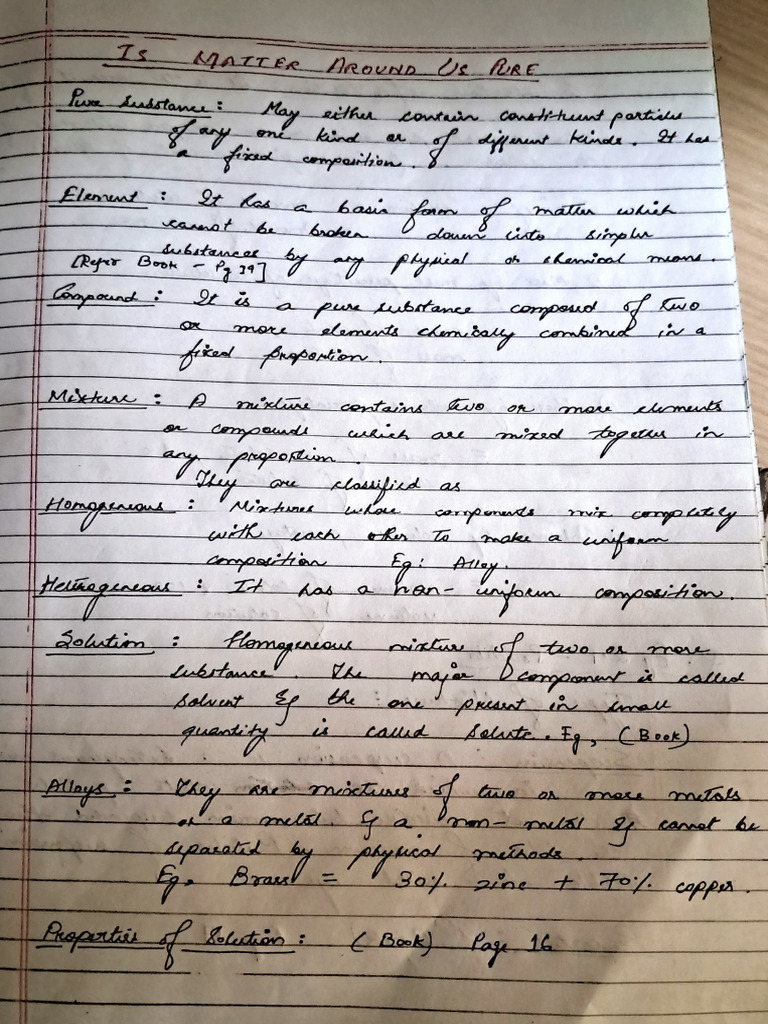 IS MATTER AROUND US PURE
Pure Substance : May either contain constituent particles
of any one kind or of different kinds. It has
a fixed composition.
Element : It has a basic form of matter which
cannot be broken down into simpler
substances by any physical or chemical means.
[Refer Book - Pg 19]
Compound : It is a pure substance composed of two
or more elements chemically combined in a
fixed proportion.
Mixture : A mixture contains two or more elements
or compounds which are mixed together in
any proportion.
They are classified as
Homogeneous : Mixtures whose components mix completely
with each other to make a uniform
composition Eg: Alloy.
Hetrogeneous : It has a non-uniform composition.
Solution : Homogeneous mixture of two or more
substance. The major component is called
solvent & the one present in small
quantity is called solute. Eg, (Book)
Alloys : They are mixtures of two or more metals
or a metal & a non-metal & cannot be
separated by physical methods.
Eg, Brass = 30% zinc + 70% copper.
Properties of Solution : (Book) Page 16